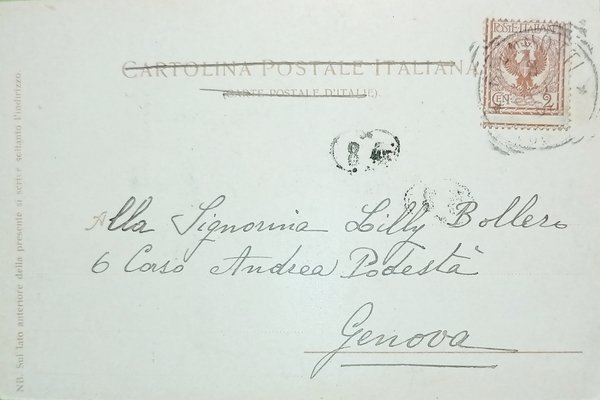 CARTOLINA POSTALE ITALIANA
(CARTE POSTALE D'ITALIE).
POSTE ITALIANE
CEN. 2
8
Alla Signorina Lilly Bollero
6 Corso Andrea Podestà
Genova
NB. Sul lato anteriore della presente si scrive soltanto l'indirizzo.